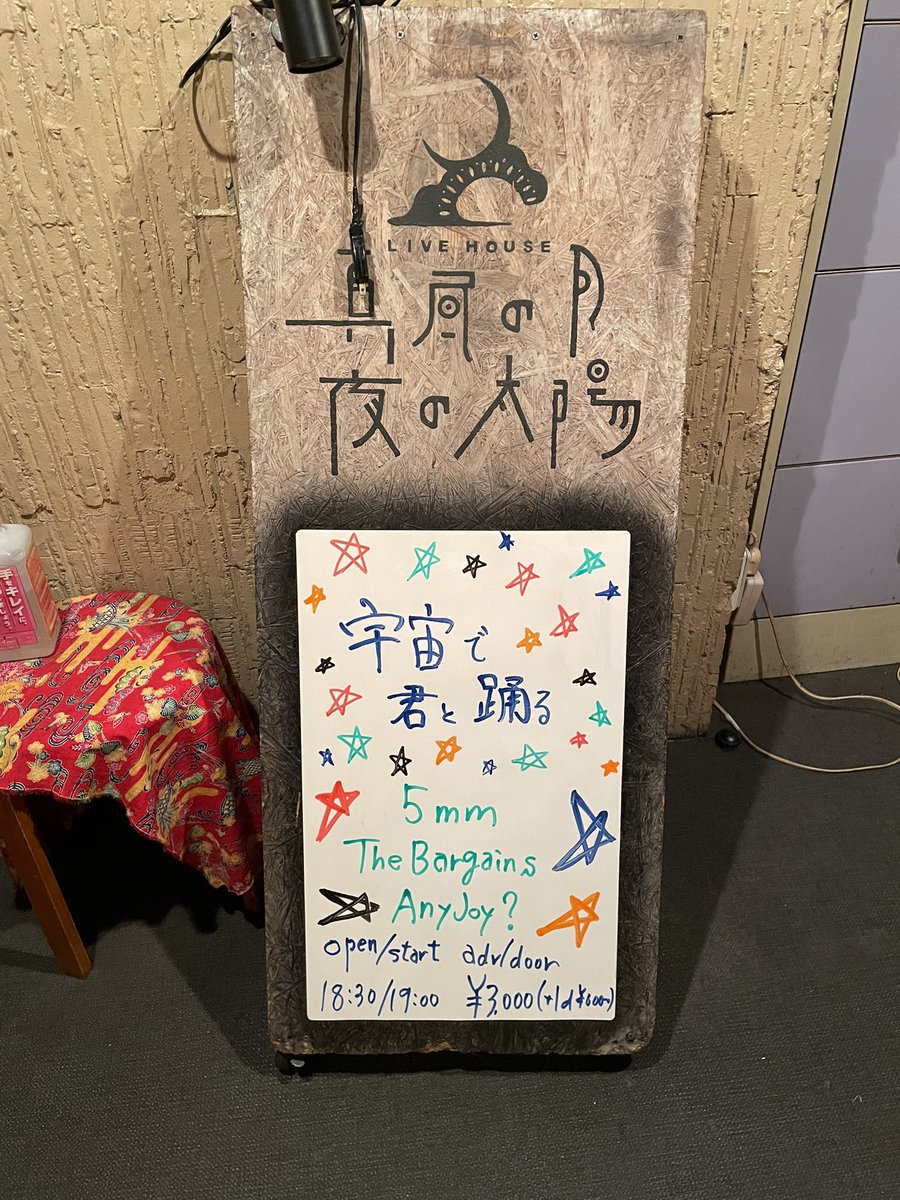 LIVE HOUSE
真昼の月
夜の太陽
宇宙で
君と踊る
5mm
The Bargains
AnyJoy?
open/start adv/door
18:30/19:00 ¥3,000(+1d ¥600-)
手をキレイに、